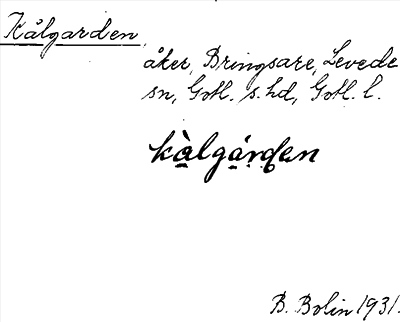 Kålgarden,
åker, Bringsare, Levede
sn, Gotl. s. hd, Gotl. l.
kàlgárdən
B. Bolin 1931.